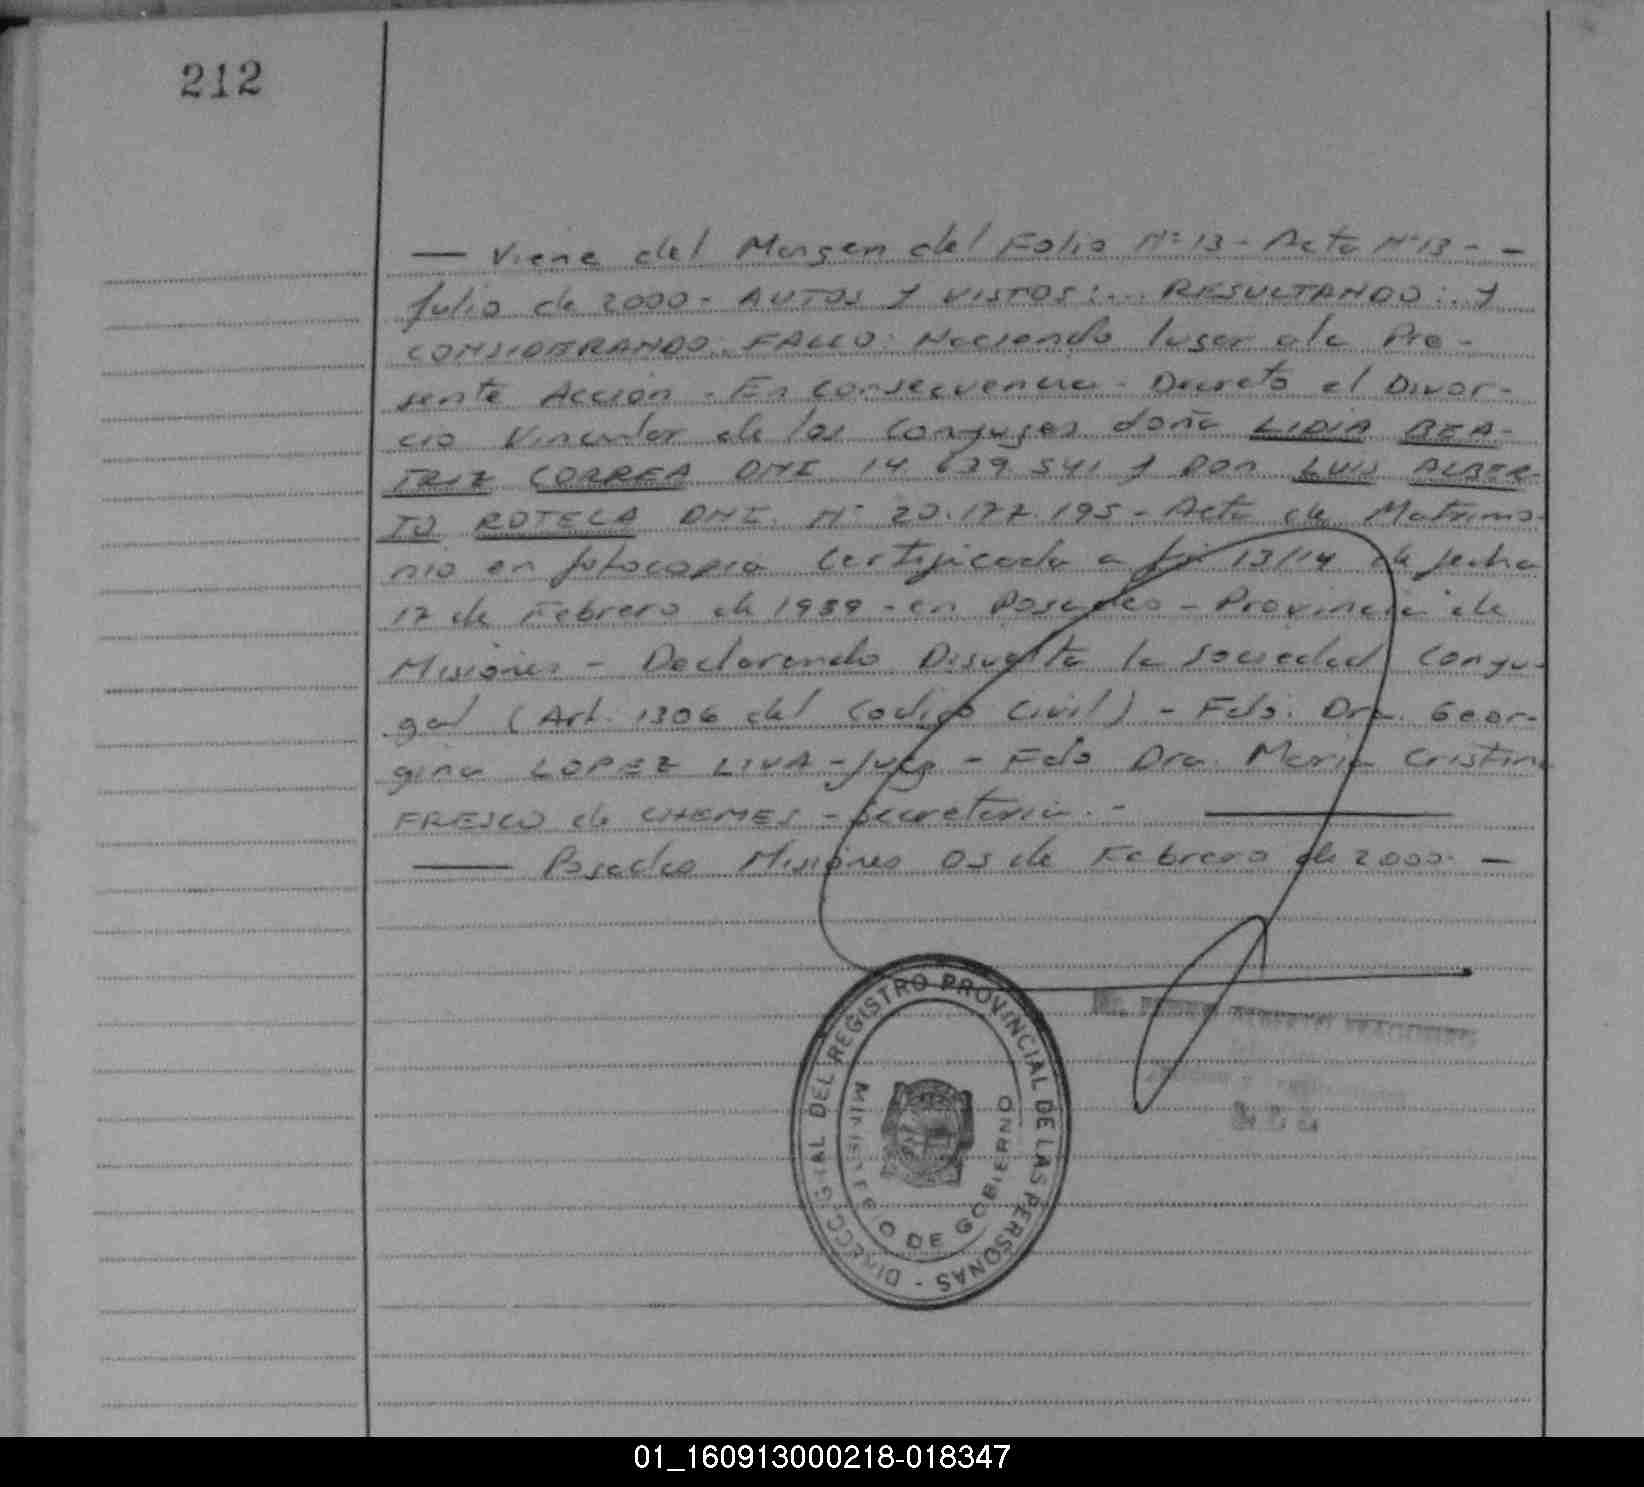 212
— Viene del Margen del Folio Nº 13 - Acta Nº 13 - -
Julio de 2000. AUTOS Y VISTOS:... RESULTANDO:. Y
CONSIDERANDO.. FALLO: Haciendo lugar a la Pre-
sente Acción. En consecuencia - Decreto el Divor-
cio Vincular de los Conyuges doña LIDIA BEA-
TRIZ CORREA DNI 14.639.541 y Don LUIS ALBER-
TO ROTELA DNI. Nº 20.177.195 - Acta de Matrimo-
nio en fotocopia Certificada a fs 13/14 de fecha
17 de Febrero de 1989 - en Posadas - Provincia de
Misiones - Declarando Disuelta la Sociedad Conyu-
gal (Art. 1306 del Codigo Civil) - Fdo. Dra. Geor-
gina LOPEZ LIVA - Juez - Fdo Dra. Maria Cristina
FRESCO de CHEMES - Secretaria. -
— Posadas Misiones 03 de Febrero de 2000. —
DIRECCION GRAL DEL REGISTRO PROVINCIAL DE LAS PERSONAS -
MINISTERIO DE GOBIERNO
01_160913000218-018347